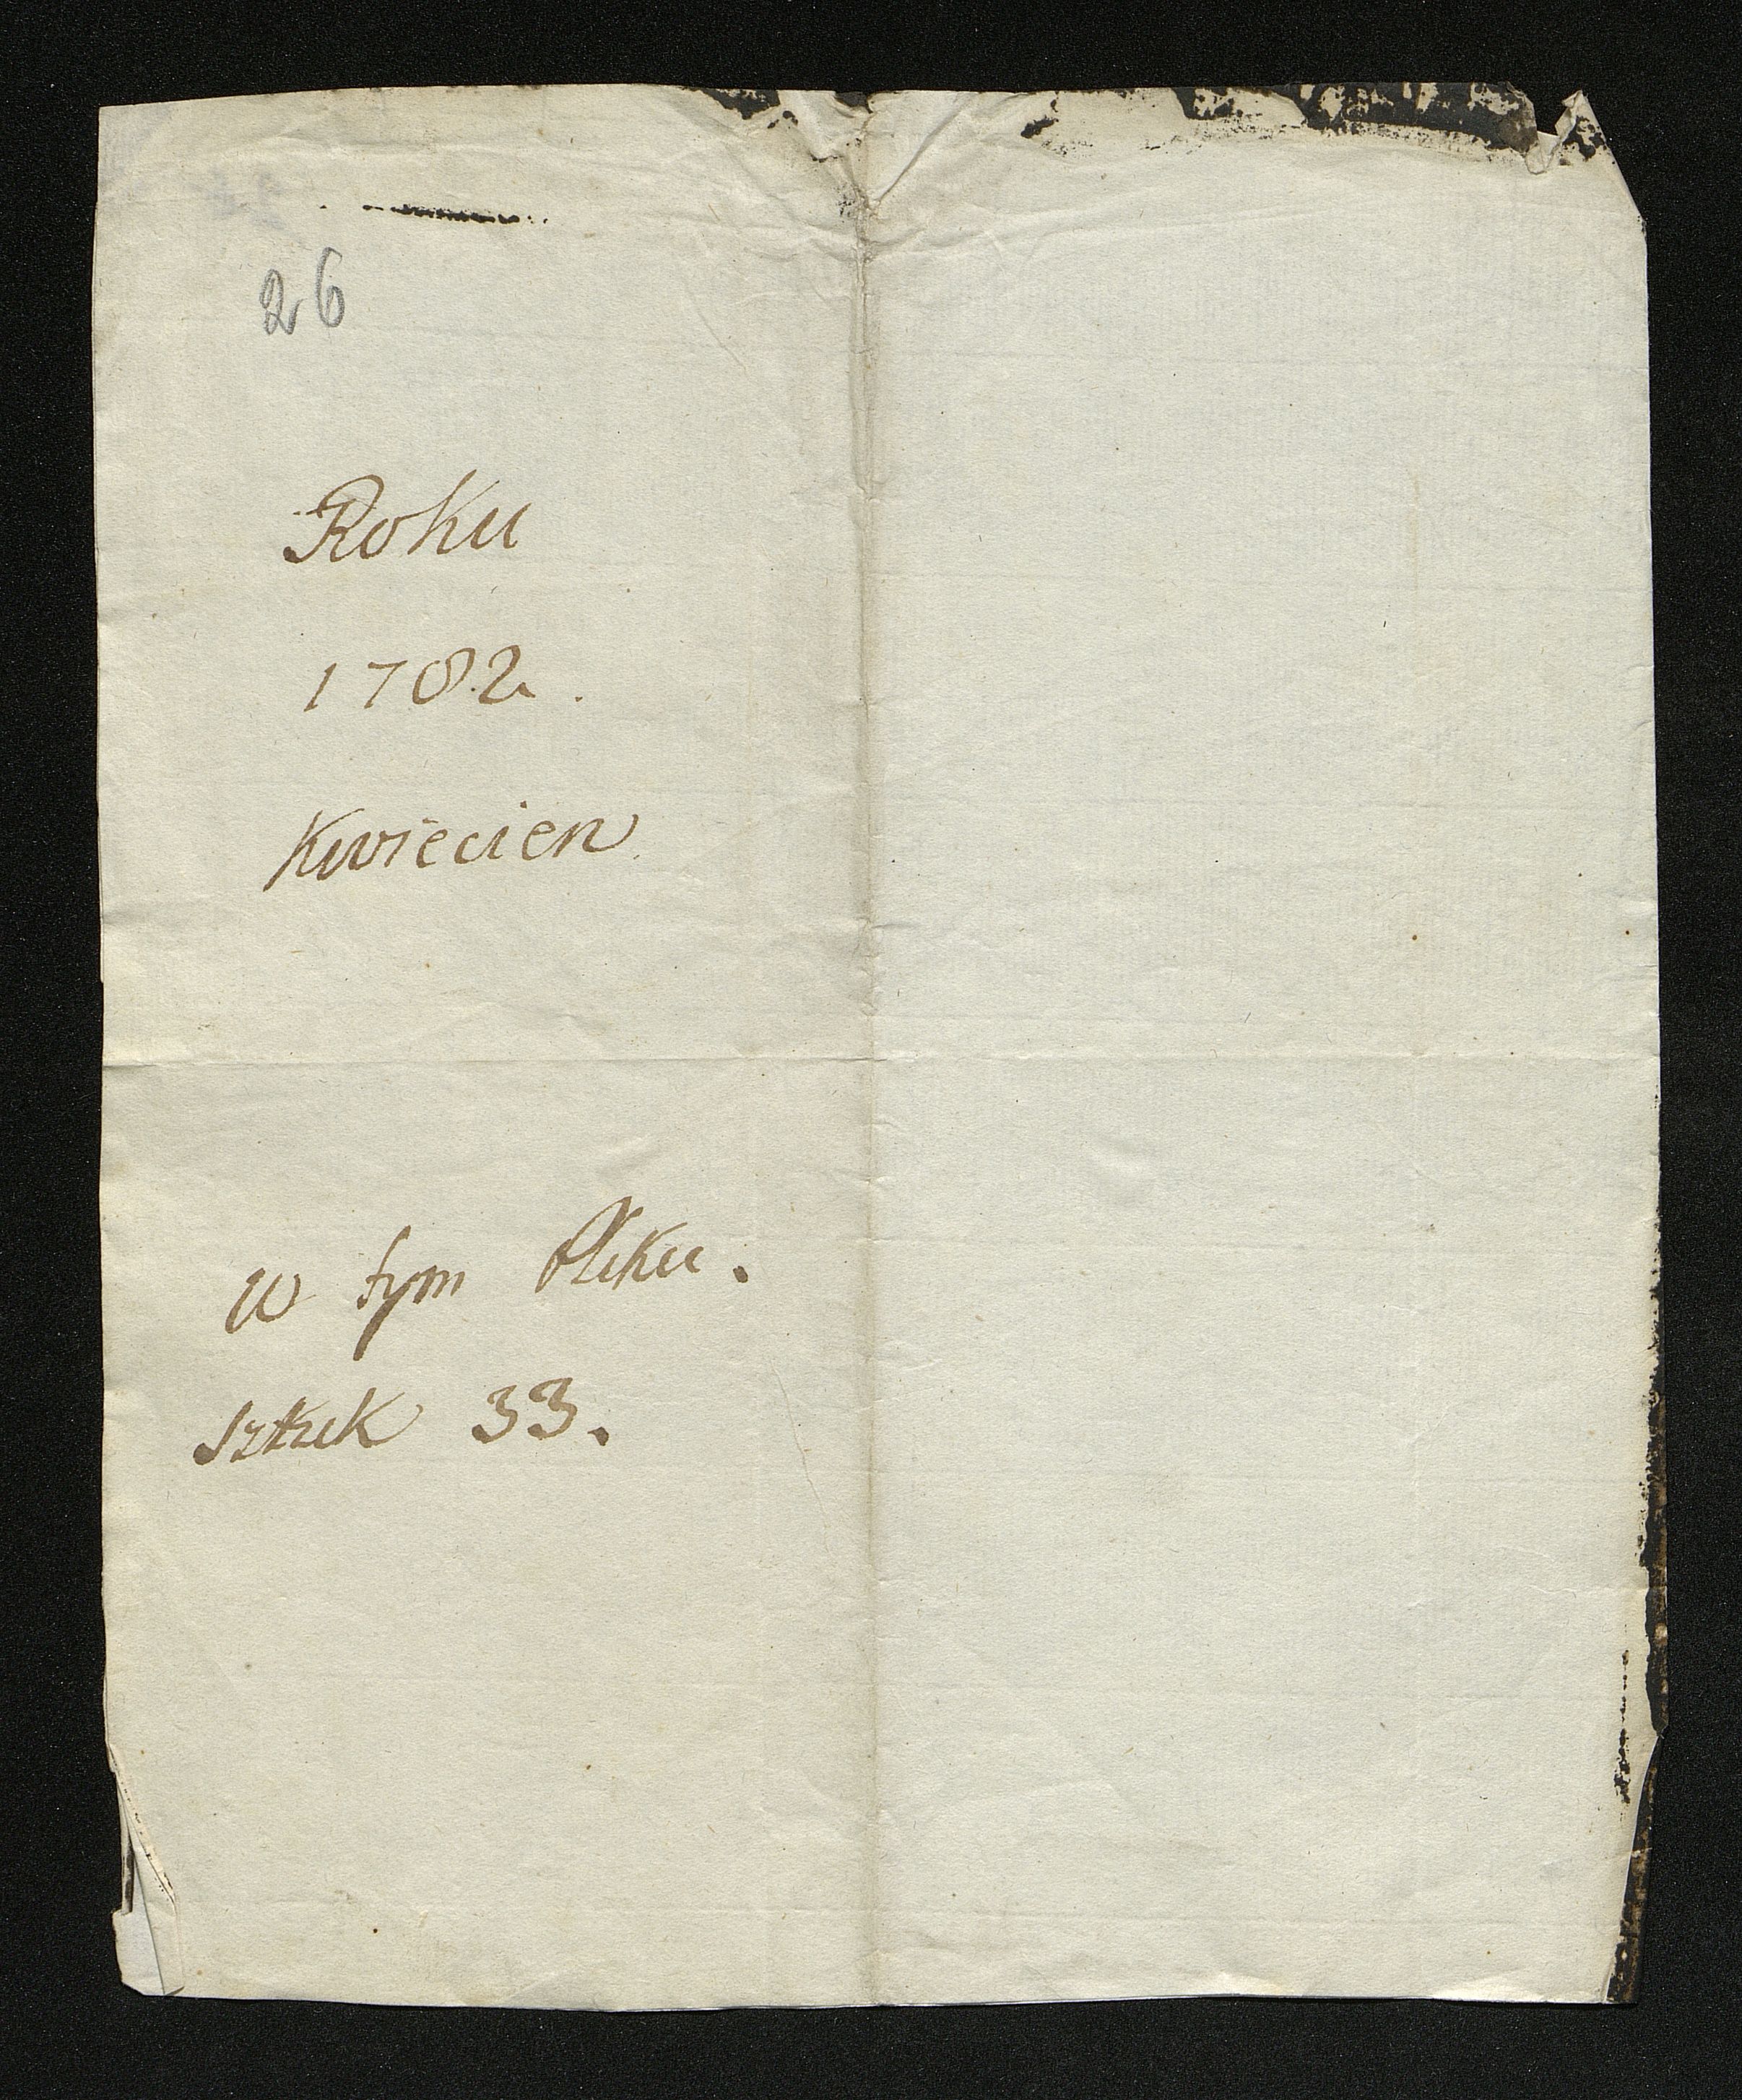 26
Roku
1782.
Kwiecien
w tym Pliku.
Sztuk 33.